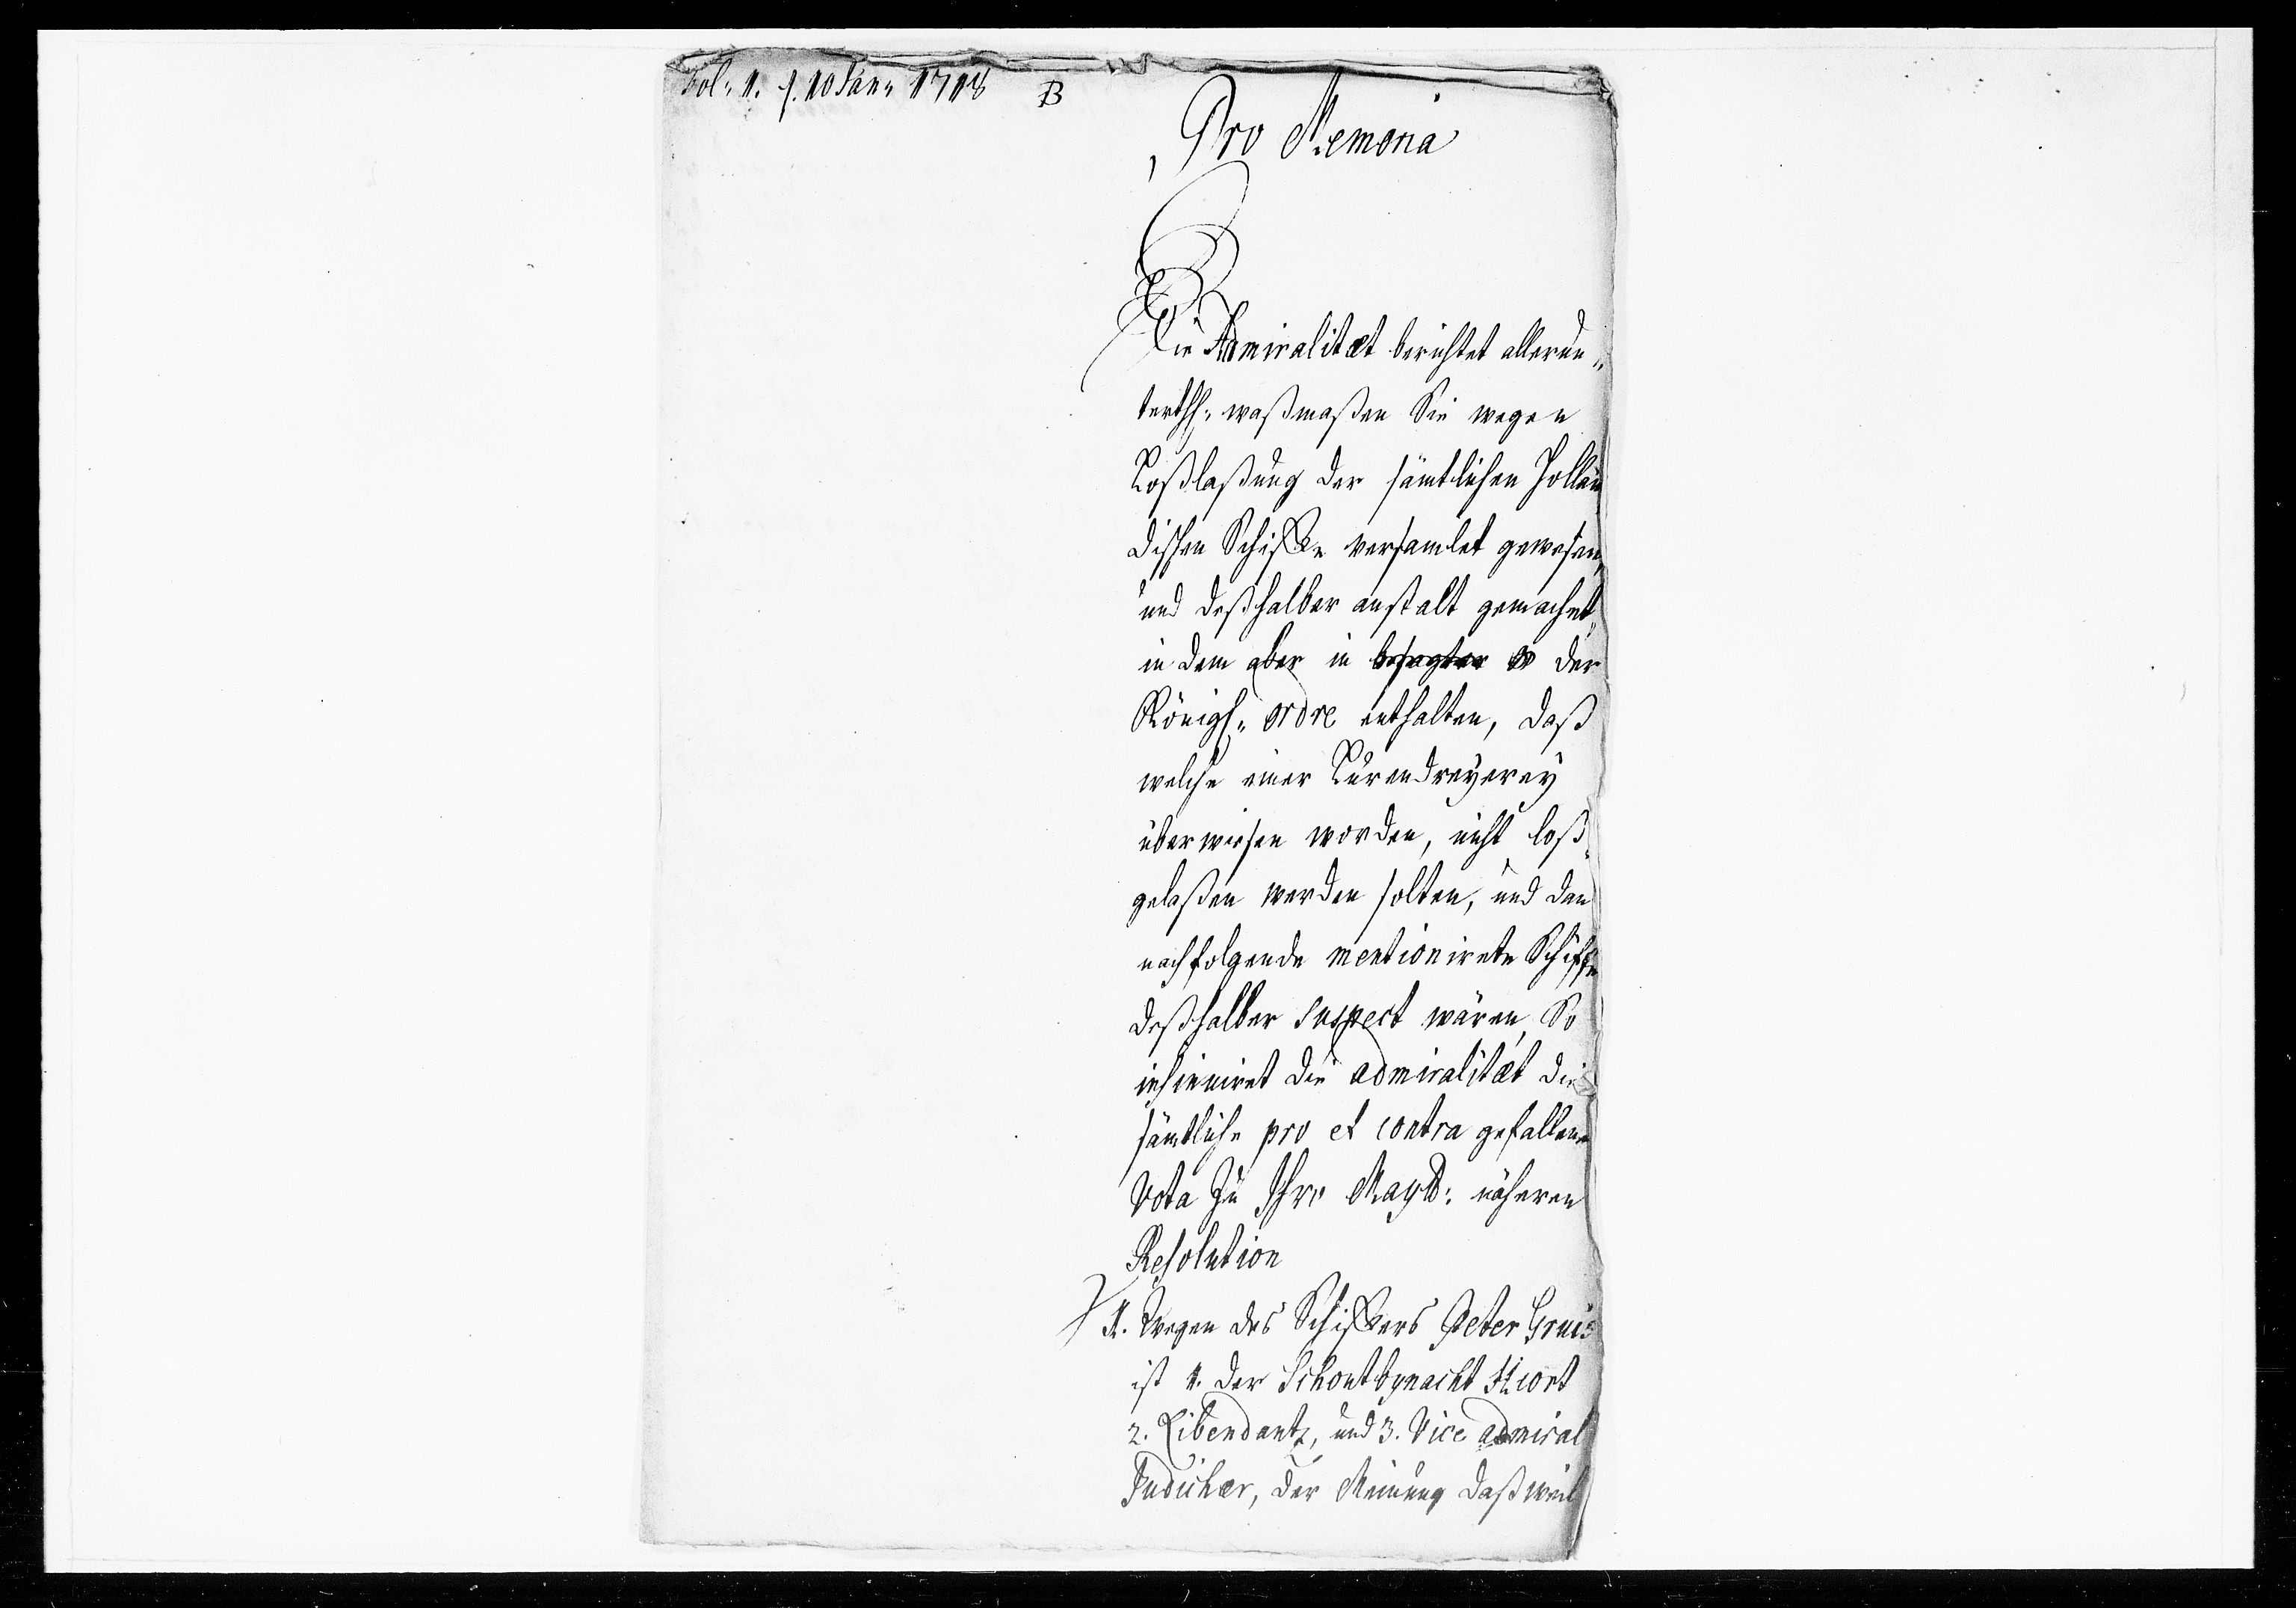 Fol: 1. f. 10 Jan: 1718 B
Pro Memoria
Die Admiralitæt berichtet allerun„
terthl: waßmaßen Sie wegen
Loßlaßung der sämtlichen Hollän
dischen Schiffe versamlet gewesen,
und deßhalber anstalt gemachet,
in dem aber in besagter der
Königl: ordre enthalten, daß
welche einer Lurendreyerey
überwiesen worden, nicht loß„
gelaßen werden solten, und dan
nachfolgende mentionirete Schiffe
deßhalber suspect wären, So
insinuiret die admiralitæt die
sämtliche pro et contra gefallene
Vota zu Ihro Maytt: näheren
Resolution
1. Wegen des Schiffers Peter Gruis
ist 1. der Schoutbynacht Hiort
2. Libendantz, und 3. Vice admiral
Judicher, der Meinung daß weil